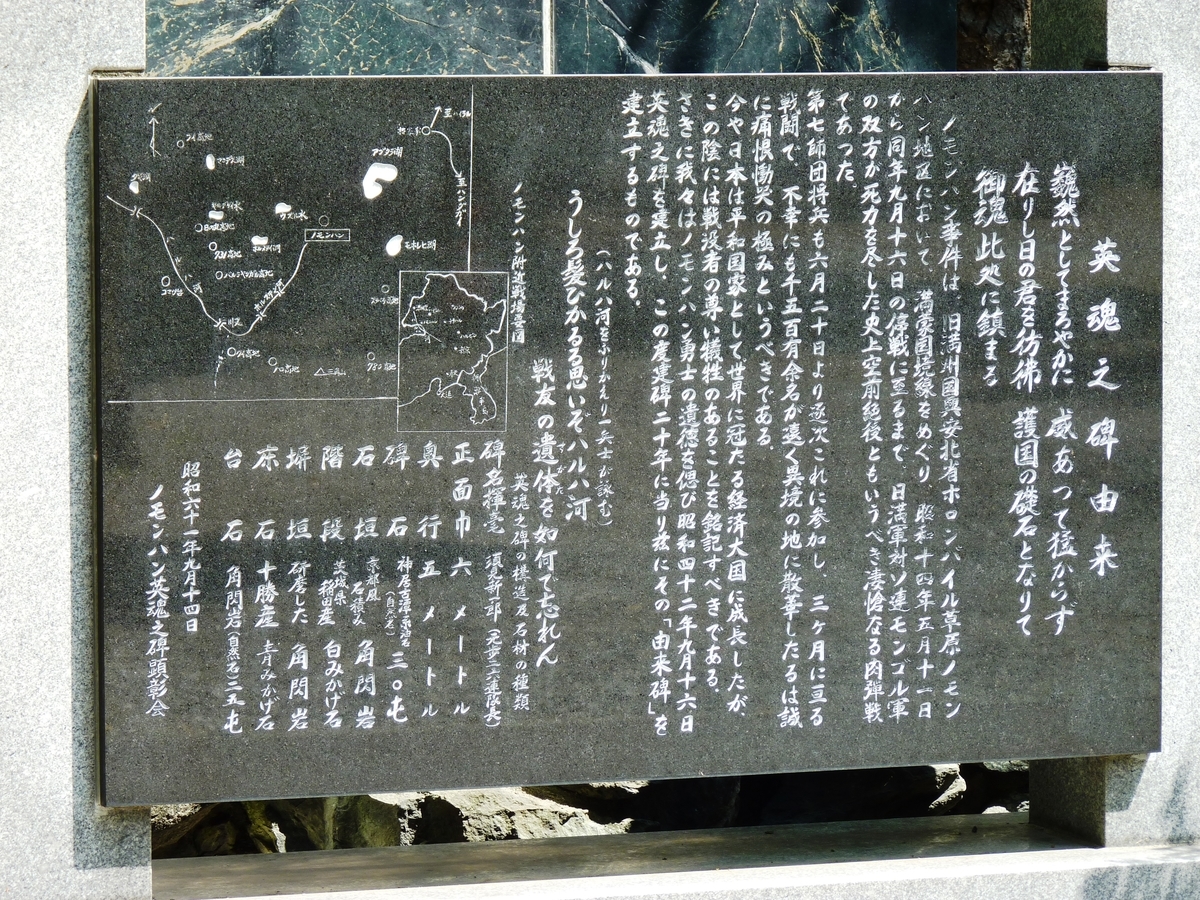 英魂之碑由来
巍然としてまろやかに 威あって猛からず
在りし日の君を彷彿 護国の礎石となりて
御魂此処に鎮まる
ノモンハン事件は、旧満州国興安北省ホロンバイル草原ノモン
ハン地区において、満蒙国境線をめぐり、昭和十四年五月十一日
から同年九月十六日の停戦に至るまで、日満軍対ソ連モンゴル軍
の双方が死力を尽した史上空前絶後ともいうべき凄愴なる肉弾戦
であった。
第七師団将兵も六月二十日より逐次これに参加し、三ヶ月に亘る
戦闘で、不幸にも千五百有余名が遠く異境の地に散華したるは誠
に痛恨慟哭の極みというべきである
今や日本は平和国家として世界に冠たる経済大国に成長したが、
この陰には戦没者の尊い犠牲のあることを銘記すべきである。
さきに我々はノモンハン勇士の遺徳を偲び昭和四十二年九月十六日
英魂之碑を建立し、この度建碑二十年に当り茲にその「由来碑」を
建立するものである。
(ハルハ河をふりかえり一兵士が詠む)
うしろ髪ひかるる思いぞハルハ河
戦友の遺体を如何で忘れん
ノモンハン附近戦場要図
N
フイ高地
アブタラ湖
ウズル水
ノモンハン
モホレヒ湖
ハルハ河
ホルステン河
バルシャガル高地
コマツ台
川又
ノロ高地
三角山
英魂之碑の構造及石材の種類
碑名揮毫 須見新一郎(元歩二六連隊長)
正面巾 六メートル
奥行 五メートル
碑石 神居古潭系油石(自然石)三〇屯
石垣 京都風石積み 角閃岩
階段 茨城県稲田産 白みかげ石
塀垣 研磨した 角閃岩
床石 十勝産 青みかげ石
台石 角閃岩(自然石)二五屯
昭和六十一年九月十四日
ノモンハン英魂之碑顕彰会